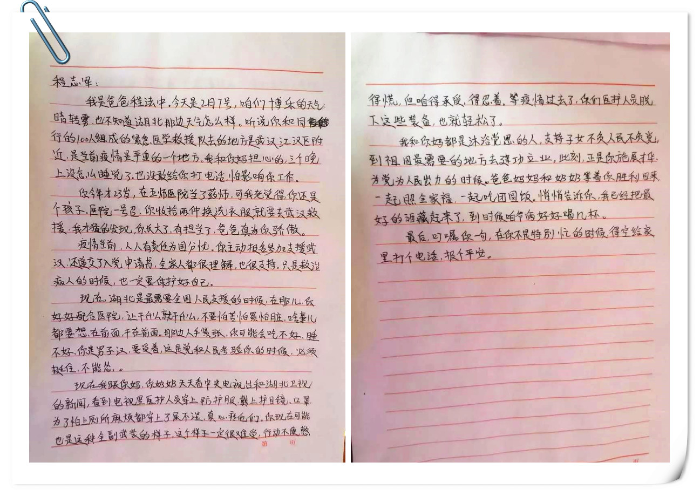 程志军：
我是爸爸程法中，今天是2月7号，咱们博乐的天气
晴转雾，也不知道湖北那边天气怎么样。听说你和同
行的100人组成的紧急医学救援队去的地方是武汉江汉区附
近，是当前疫情最严重的一个地方，爸和你妈担心的，三个晚
上没怎么睡觉了，也没敢给你打电话，怕影响你工作。
你今年才23岁，在五师医院当了药师，可我老觉得你还是
个孩子，医院一号召，你收拾两件换洗衣服就要去武汉救
援，我才猛的发现，你长大了，有担当了，爸爸真为你骄傲。
疫情当前，人人有责任为国分忧，你主动报名参加支援武
汉，还递交了入党申请书，全家人都很理解，也很支持，只是救治
病人的时候，也一定要保护好自己。
现在，湖北是最需要全国人民支援的时候，在那儿，你
好好配合医院，让干什么就干什么，不要怕苦怕累怕脏，啥事儿
都要想在前面，干在前面，那边人手紧张，你可能会吃不好，睡
不好，你是男子汉，要受着，这是党和人民考验你的时候，必须
挺住，不能怂。
现在我跟你妈、你奶奶天天看中央电视台和湖北卫视
的新闻，看到电视里医护人员穿上防护服，戴上护目镜，
为了怕上厕所麻烦都穿上了尿不湿，真心疼他们。你现在可能
也是这种全副武装的样子，这个样子一定很难受，行动不便，憋
得慌，但咱得承受，得忍着，等疫情过去了，你们医护人员脱
下这些装备，也就轻松了。
我和你妈都是沐浴党恩的人，支持子女不负人民不负党，
到祖国最需要的地方去建功立业，此刻，正是你施展才华，
为党为人民出力的时候。爸爸妈妈和奶奶等着你胜利归来
一起照全家福，一起吃团圆饭。悄悄告诉你，我已经把最
好的酒藏起来了，到时候咱爷俩好好喝几杯。
最后，叮嘱你一句，在你不是特别忙的时候，得空给家
里打个电话，报个平安。